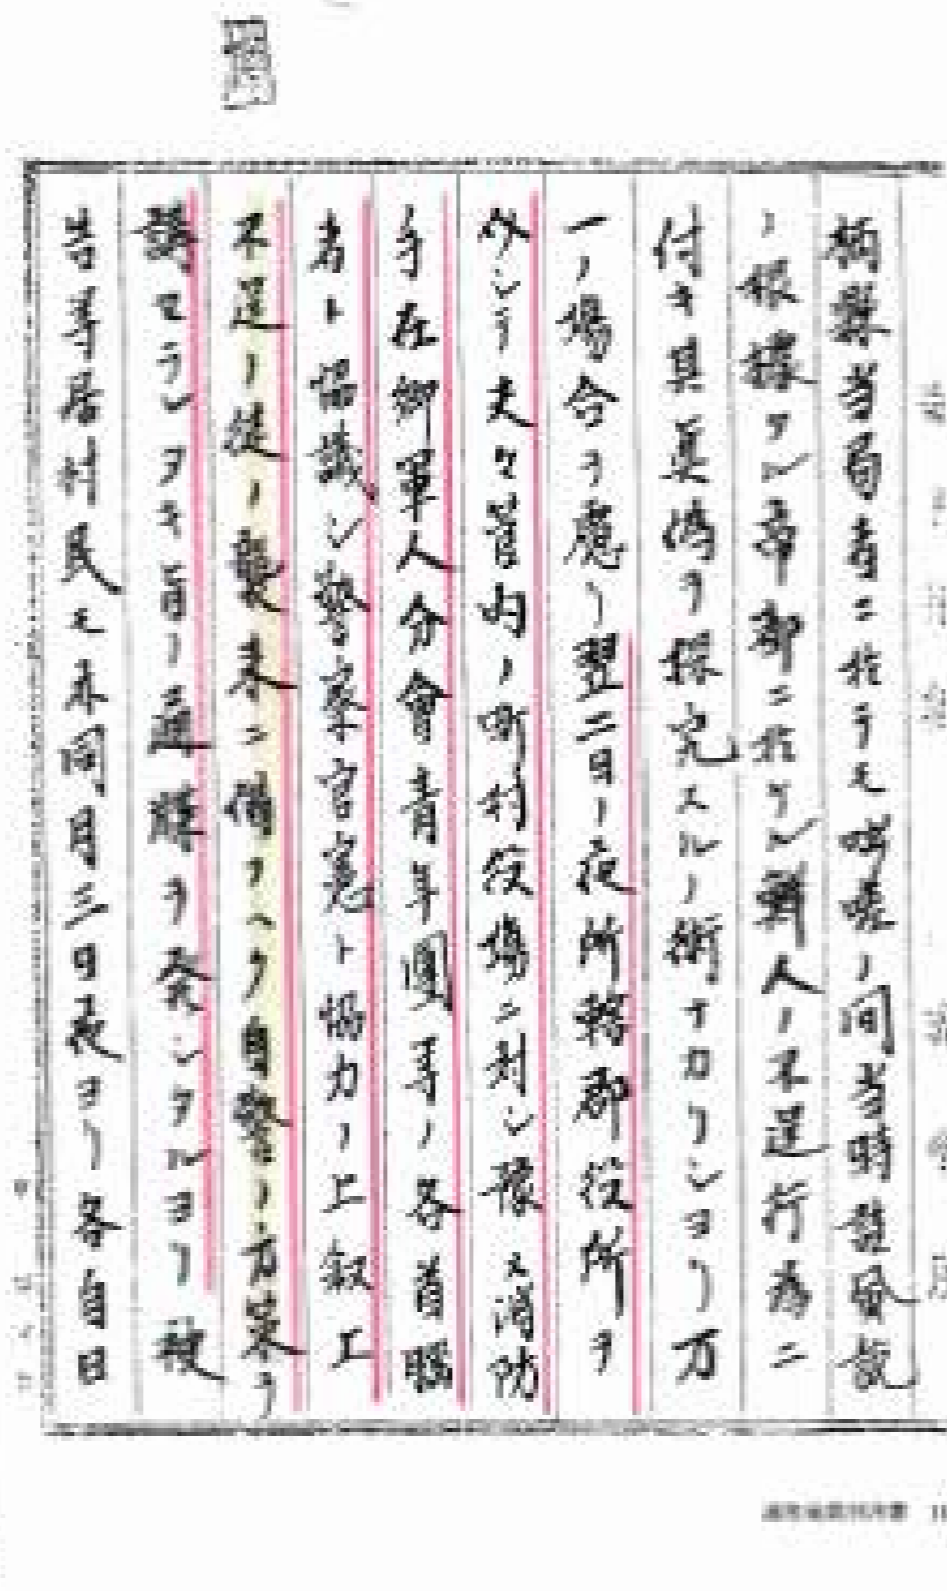 縣當局者ニ於テモ咄嗟ノ間當時該風説
ノ根據タル帝都ニ於ケル鮮人ノ不逞行為ニ
付キ其真偽ヲ探究スルノ術ナカリシヨリ万
一ノ場合ヲ慮リ翌二日ノ夜所轄郡役所ヲ
介シテ夫々管内ノ町村役場ニ対シ豫メ消防
手在郷軍人分會青年團等ノ各首脳
者ト協議シ警察官憲ト協力ノ上叙上
不逞ノ徒ノ襲来ニ備フヘク自警ノ方策ヲ
講セラレタキ旨ノ通牒ヲ発シタルヨリ
住民モ亦同月三日夜ヨリ各自